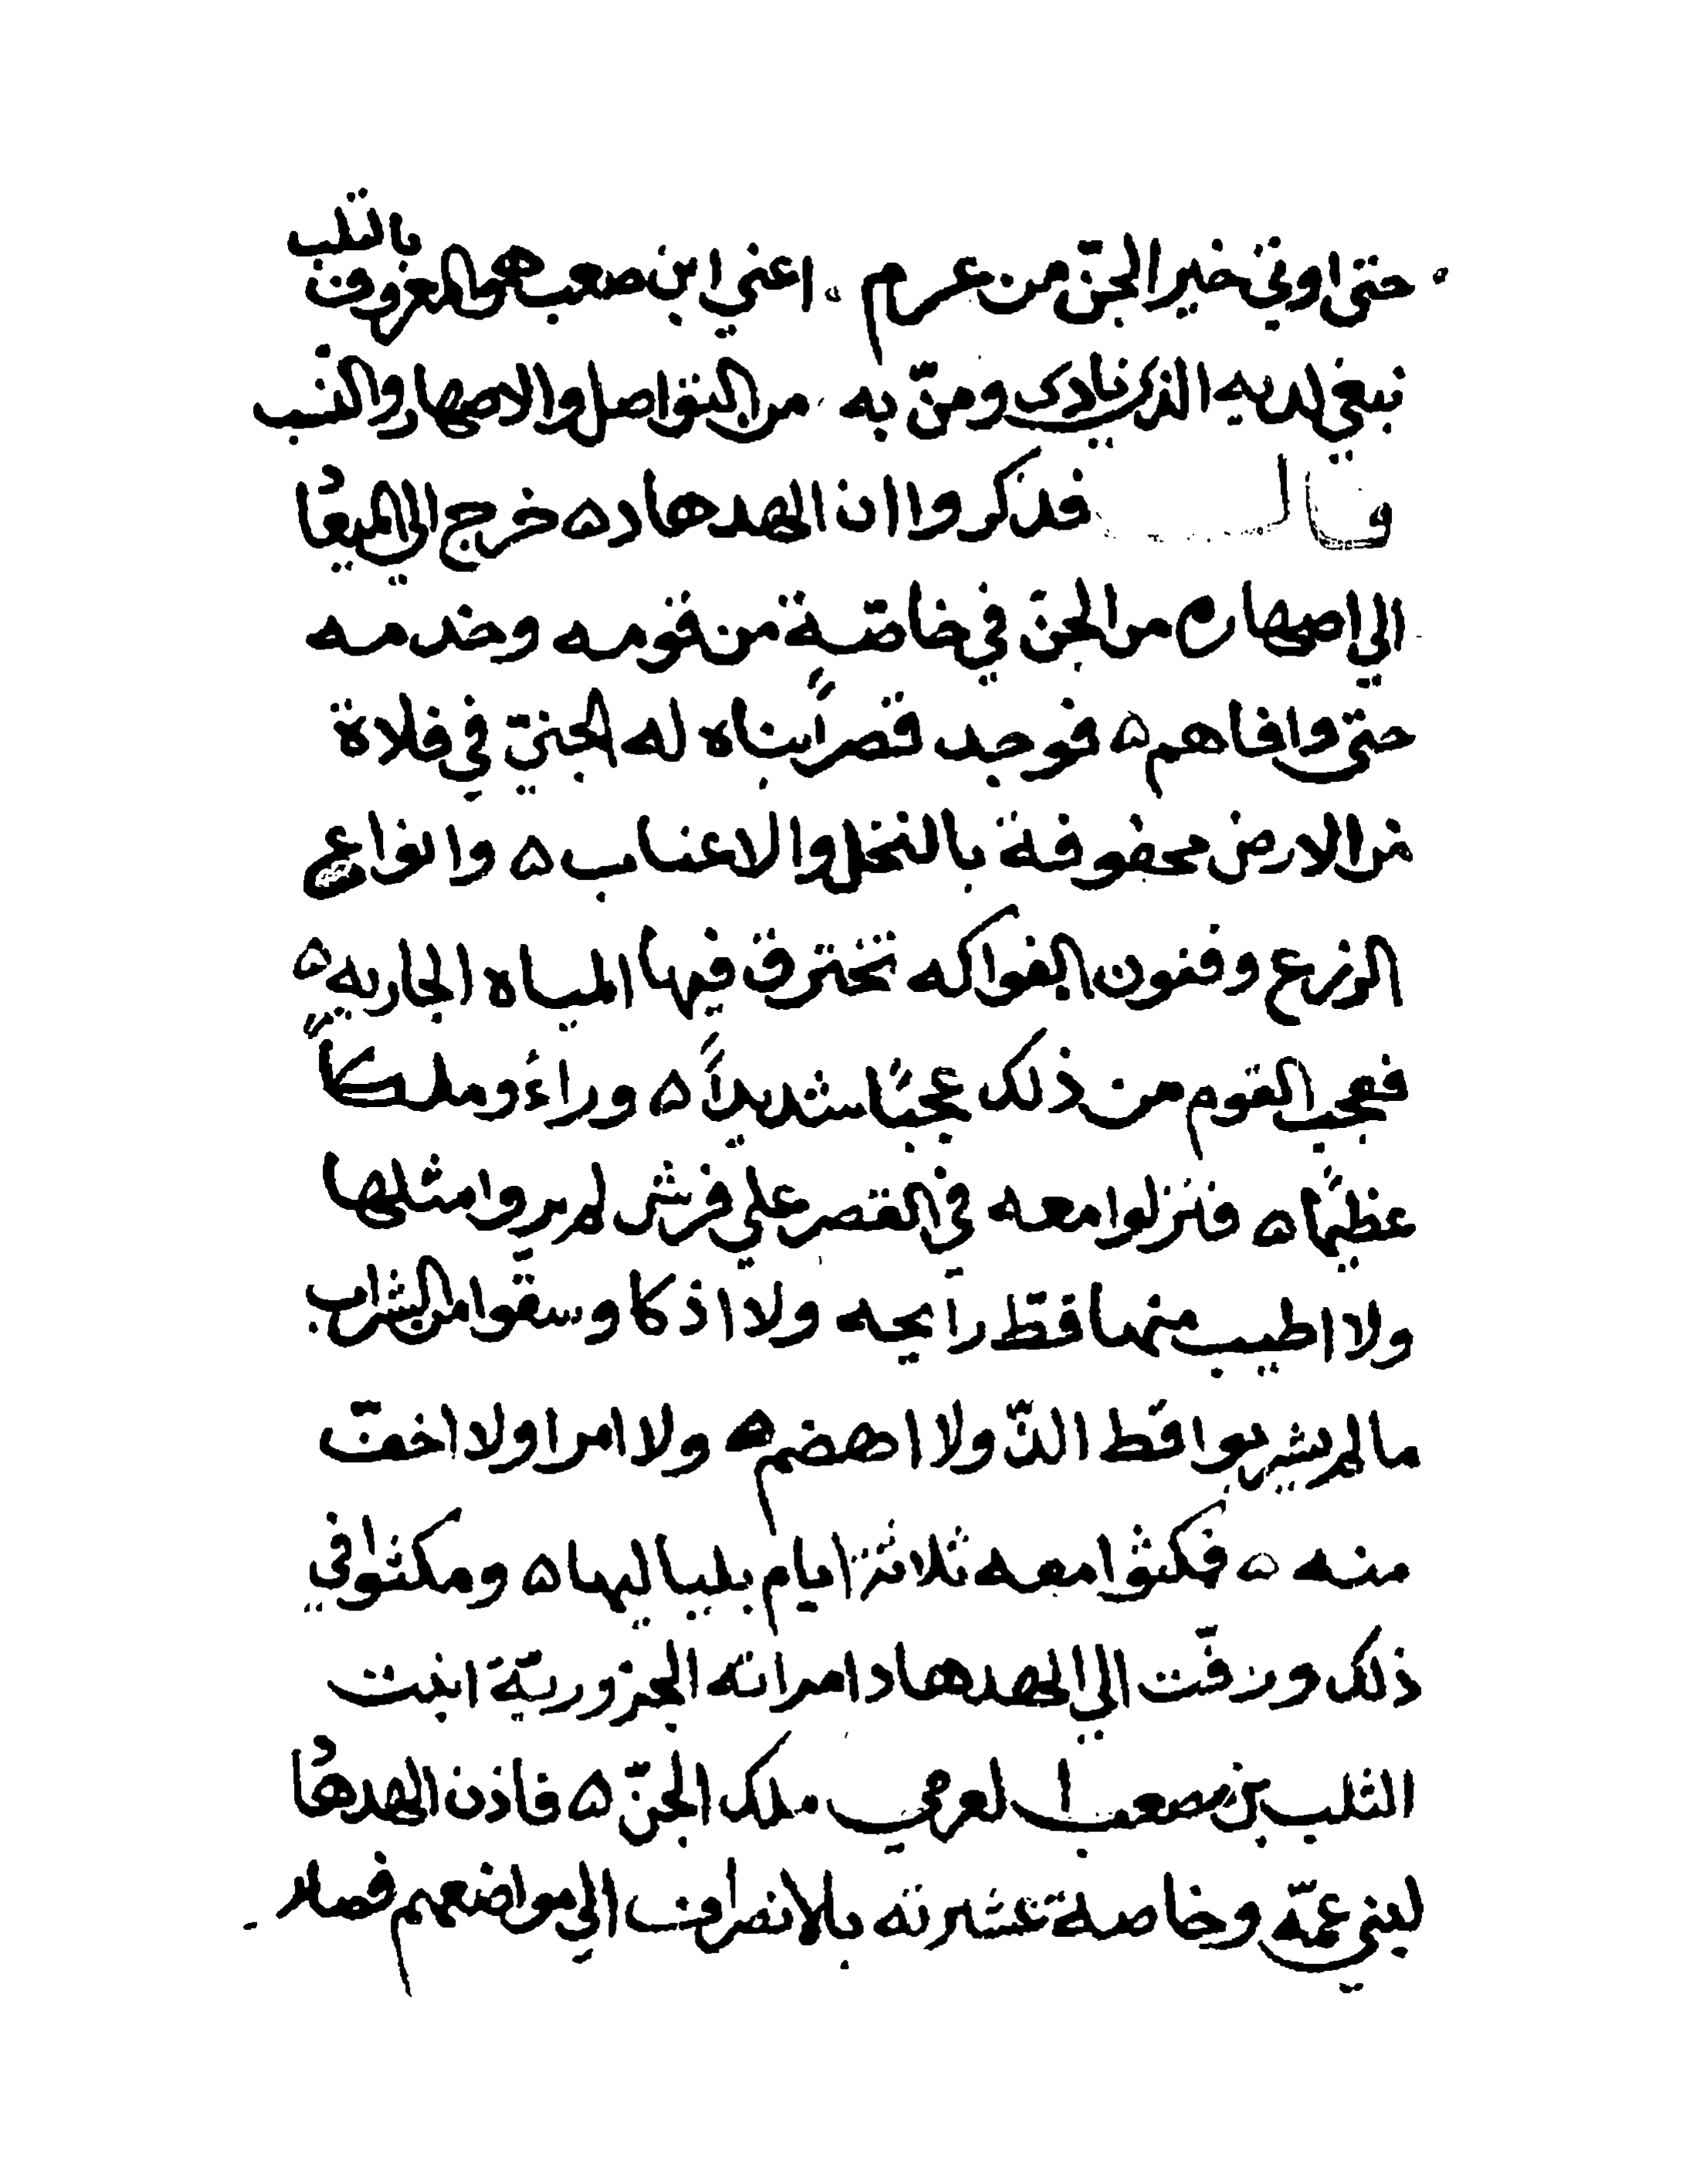 حتى اوتي خير الجنّ من عرم . اعني ابن صعب هو المعروف بالتلب
نبغي لديه الذي نادى ومنّ به من التواصل والاصهار والنسب
قال فذكروا ان الهدهاد ۵ خرج الى الميعاد
الي اصهاره من الجنّ في خاصّة من قومه وخدمه
حتى وافاهم ۵ فوجد قصراً بناه له الجنيّ في فلاة
من الارض محفوفة بالنخل والاعناب ۵ وانواع
الزرع وفنون الفواكه تخترق فيها المياه الجاريه ۵
فعجب القوم من ذلك عجبًا شديداً ۵ وراءو ملكاً
عظيمًا ۵ فنزلوا معه في القصر علي فرش لم يروا مثلها
ولا اطيب منها قط رايحه ولا اذكا وسقوا من الشراب
ما لم يشربوا قط الذّ ولا اهضم ۵ ولا امرا ولا اخفّ
منه ۵ فمكثوا معه ثلاثة ايام بلياليها ۵ ومكثوا في
ذلك وزفّت الي الهدهاد امراته الحزوريّة ابنت
التلب بن صعب العرمي ملك الجنّ ۵ فاذن الهدهاد
لبني عمّه وخاصة عشيرته بالانصراف الي مواضعهم فصار